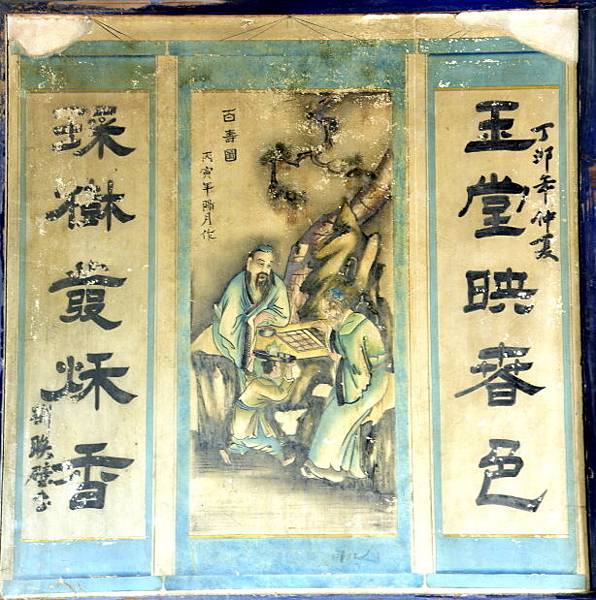 丁卯年仲夏
玉堂映春色
百壽圖
丙寅年臘月作
樹發香
映璧書